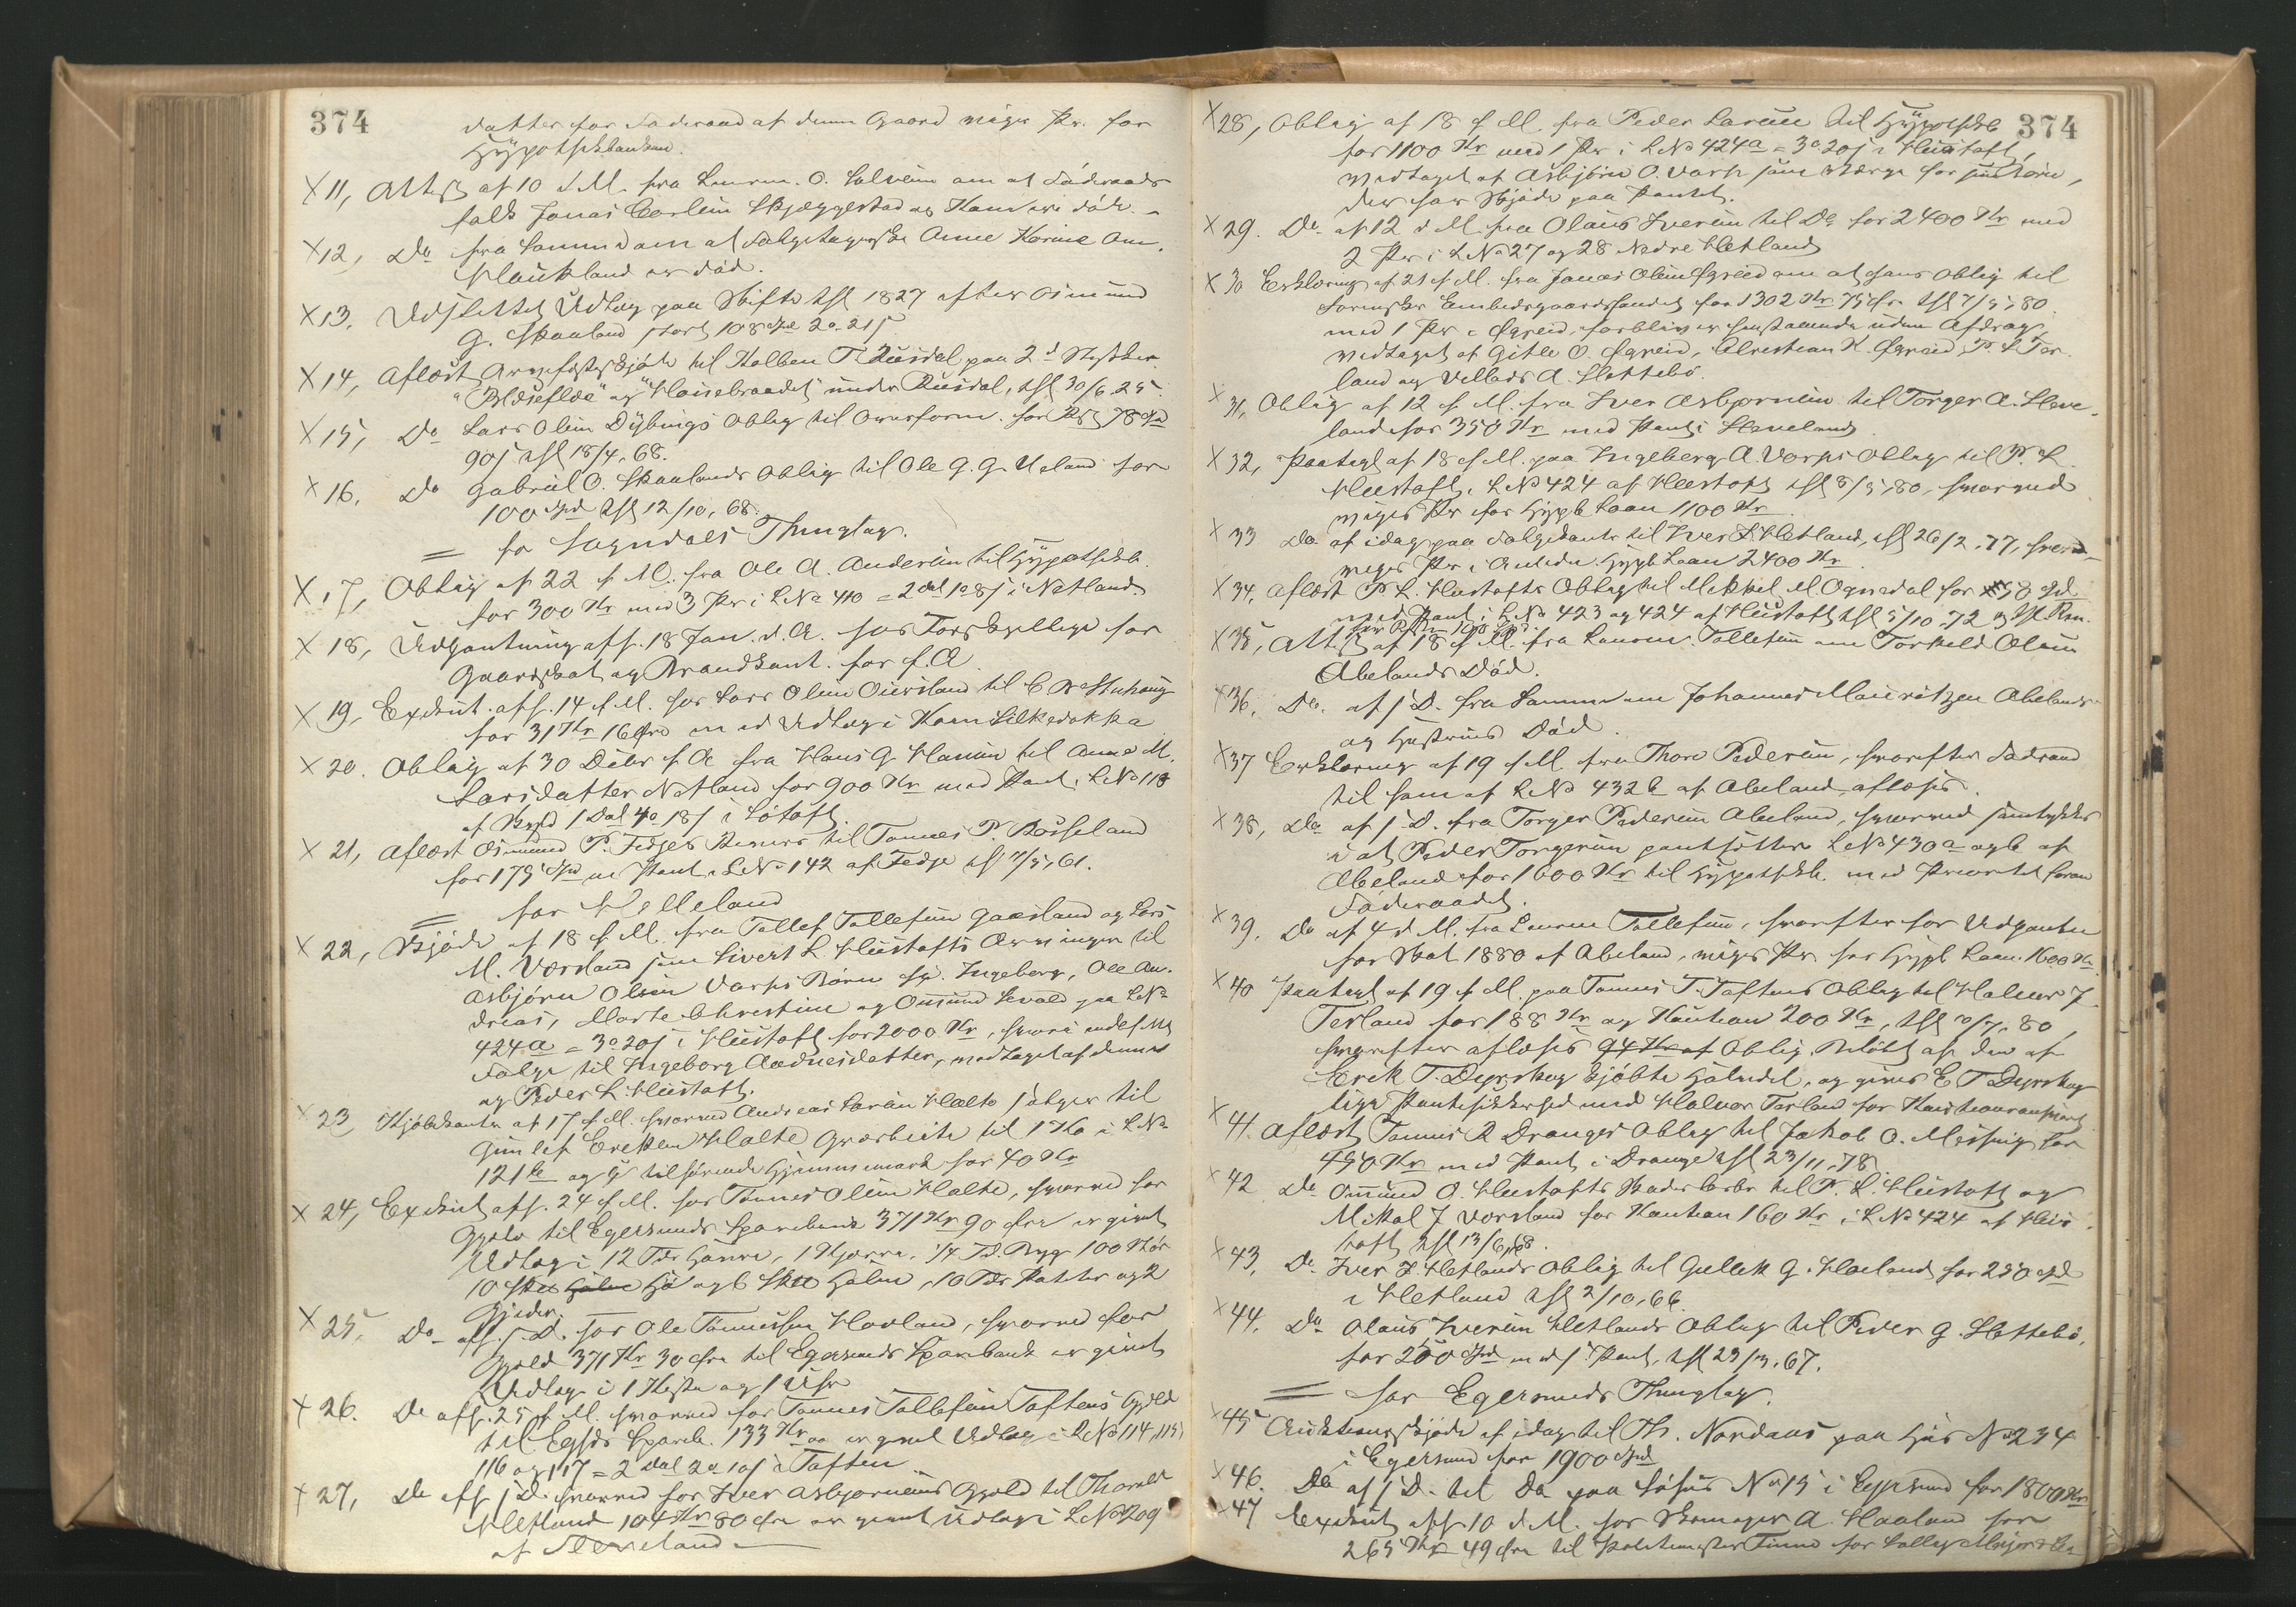 374
datter for Føderaad af denne Gaard viger Pr. for
Hypothekbanken.
X 11, Attest af 10 d. M. fra Lensm. O. Salvesen om at Føderaads
folk Jonas Carlsen Skjæggestad og Kone ere døde.
X 12, Do fra Samme om at Følgetagerske Anne Karine Am.
Haukland er død.
X 13. Udslettet Udlæg paa Skifte thl 1827 efter Osmund
G. Skaaland stort 108 Spd 2o 21s
X 14, Aflæst Arvefæsteskjøde til Kolben T. Ruusdal paa 2d Stykker
"Blæsefloe" og "Heiebraadet" under Ruusdal, thl 30/6 25.
X 15, Do Lars Olsen Dybings Oblig til Overform. for Rest 78 Spd
90s thl 18/4, 68.
X 16. Do Gabriel O. Skaalands Oblig til Ole G. G. Ueland for
100 Spd thl 12/10, 68.
= for Sogndals Thinglag.
X 17, Oblig af 22 f. M. fra Ole A. Andersen til Hypothekb.
for 300 Kr med 3 Pr i LNo 410 = 2 dal 1o 8s i Netland
X 18, Udpantning aff. 18 Jan. d. A. hos for
Gaardskat og Brandkont. for f. A.
X 19, Exekut. aff. 14 f. M. hos Lars Olsen Ouesland til
for 31 Kr 16 Øre med Udlæg i Koen Silkedokka
X 20. Oblig af 30 Debr f. A. fra Hans G. Hansen til Anne M.
Larsdatter Netland for 900 Kr med Pant i LNo 118
af Bygd 1 Dal 4o 18s i Løtoft
X 21, Aflæst Osmund P. Fedjes til Tønnes P. Rosseland
for 175 Spd m Pant i LNo 142 af Fedje thl 7/5, 61.
= for Helleland
X 22, Skjøde af 18 f. M. fra Tollef Tollefsen Gaasland og Lars
M. Vorsland som Sivert L. Heestofts Arvinger til
Asbjørn Olsen Varps Børn sp. Ingeborg, Ole An-
dreas, Marte Christine og Omund Sevald paa LNo
424a = 3o 20s i Heestoft for 2000 Kr, hvori indest
Følge til Ingeborg Aadnesdatter, medtaget af denne
og Peder L. Heestoft.
X 23, Kjøbekontr af 17 f. M. hvorved Andreas Larsen Hæltø sælger til
Gunlef Ericksen Hæltø Græsbeite til 1 Ko i LNo
121b og g tilhørende Hjemmemark for 40 Kr
X 24, Exekut. aff. 24 f. M. hos Tønnes Olsen Hæltø, hvorved for
Gjeld til Egersunds Sparebank 371 Kr 90 Øre er givet
Udlæg i 12 Tdr Havre, 1 Kjærre, 1/4 Td. Byg 100 Vog
10 Skt Halm Hø og 6 Skt Halm, 10 Tdr Poteter og 2
Gjeder.
X 25. Do aff. s. D. hos Ole Tønnessen Hovland, hvorved for
Gjeld 371 Kr 30 Øre til Egersunds Sparebank er givet
Udlæg i 1 Hest og 1 Uhr
X 26. Do aff. 25 f. M. hvorved for Tønnes Tollefsen Toftens Gjeld
til Egsds Spareb. 133 Kr er givet Udlæg i LNo 114, 115,
116 og 117 = 2 Dal 2o 10s i Toften
X 27, Do aff. s. D. hvorved for Iver Asbjørnsens Gjeld til Thorvald
Hetland 104 Kr 80 Øre er givet Udlæg i LNo 209
af Sleveland
374
X 28, Oblig af 18 f. M. fra Peder Larsen til Hypothekb
for 1100 Kr med 1 Pr i LNo 424a = 3o 20s i Heestoft,
medtaget af Asbjørn O. Varp som Værge for sine Børn,
der har Skjøde paa Pantet.
X 29. Do af 12 d. M. fra Olaus Iversen til Do for 2400 Kr med
2 Pr i LNo 27 og 28 Nedre Hetland
X 30 Erklæring af 21 f. M. fra Jonas Olsen Øgreid om at hans Oblig til
Embedsgaardsfondet for 1302 Kr 75 Øre thl 7/5, 80.
med 1 Pr i Øgreid, forbliver henstaaende uden Afdrag,
medtaget af Gitle O. Øgreid, Christian K. Øgreid, P. L. Ter-
land og Vellads A. Slettebø.
X 31, Oblig af 12 f. M. fra Iver Asbjørnsen til Torger A. Sleve-
land for 350 Kr med Pant i Sleveland
X 32, Paategn af 18 f. M. paa Ingeborg A. Varps Oblig til P. L.
Heestoft, i LNo 424 af Heestoft thl 8/5, 80, hvorved
viges Pr for Hypb Laan 1100 Kr
X 33 Do af idag paa Følgekontr til Iver I. Hetland, thl 26/2, 77, hvorv.
viges Pr i Anledn Hypb Laan 2400 Kr
X 34, Aflæst P. L. Heestofts Oblig til Mekkel M. Ognedal for 58 Spd
med Pant i LNo 423 og 424 af Heestoft thl 5/10, 72
X 35, Attest af 18 f. M. fra Lensm. Tollefsen om Torkeld Olsen
Abelands Død.
X 36. Do. af s. D. fra Samme om Johannes Mauritzen Abelands
og Hustrues Død.
X 37 Erklæring af 19 f. M. fra Thore Pedersen, hvorefter Føderaad
til ham af LNo 432b af Abeland, aflæses.
X 38, Do af s. D. fra Torger Pedersen Abeland, hvorved samtykkes
i at Peder Torgersen pantsætter LNo 430a og b af
Abeland for 1600 Kr til Hypothekb. med Prioritet foran
Føderaadet.
X 39. Do af 4 d. M. fra Lensm Tollefsen, hvorefter for Udpantn
for Skat 1880 af Abeland, viges Pr for Hypb Laan 1600 Kr
X 40 Paategn af 19 f. M. paa Tønnes T. Toftens Oblig til Halvor J.
Terland for 188 Kr og Kaution 200 Kr, thl 10/7, 80,
hvorefter aflæses 94 Kr af Oblig. Beløbet af den af
Erik T. Dyrskog kjøbte Halvdel, og gives E. T. Dyrskog
lige Pantesikkerhed med Halvor Terland for Kautionsansvar
X 41. Aflæst Tønnes R. Dranges Oblig til Jakob O. Messing for
450 Kr med Pant i Drange thl 23/11, 78
X 42 Do Omund O. Heestofts til P. L. Heestoft og
Mikal J. Vorsland for Kaution 160 Kr i LNo 424 af Hee-
stoft thl 13/6, 68.
X 43, Do Iver I. Hetlands Oblig til Gulleik G. Haaland for 250 Spd
i Hetland thl 2/10, 66.
X 44. Do Olaus Iversen Hetlands Oblig til Peder G. Slettebø,
for 200 Spd med s. Pant, thl 23/3, 67.
= for Egersunds Thinglag.
X 45 Auktionsskjøde af idag til Th. Nordaas paa Hus No 234
i Egersund for 1900 Spd
X 46. Do af s. D. til Do paa Søhus No 15 i Egersund for 1800 Kr
X 47 Exekut. aff. 10 d. M. hos Skomager A. Haaland for
265 Kr 49 Øre til Politimester Finne for